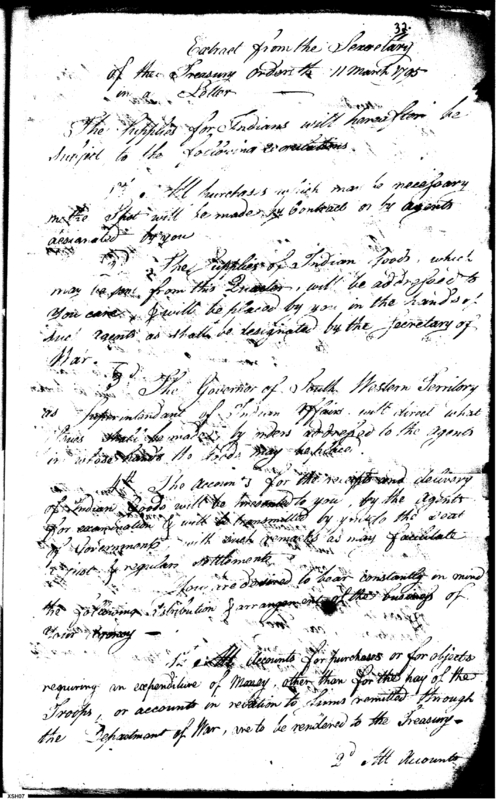 32.
Extract from the Secretary
of the Treasury orders 11 March 1795
in a Letter
The Supplies for Indians will hereafter be
subject to the following
1st. All purchases which may be necessary
on the Spot will be made by Contract or by agents
designated by you
2d The Supplies of Indian Goods, which
may be sent from this Quarter, will be addressed to
Your care & will be placed by you in the hands of
such agents as shall be designated by the Secretary of
War
3d The Governor of South Western Territory
as Superintendant of Indian Affairs will direct what
shall be made by orders addressed to the agents
in whose hands the Goods may be placed.
4th The Accounts for the receipts and delivery
of Indian Goods will be presented to you, by the agents
for examination & will be transmitted by you to the seat
of Government with such remarks as may facilitate
& regular settlements
You are desired to bear constantly in mind
the following distribution & arrangement of the business of
Your Agency —
1st. All Accounts for purchases or for objects
requiring an expenditure of Money, other than for the pay of the
Troops, or accounts in relation to Sums remitted through
the Department of War, are to be rendered to the Treasury -
2d All Accounts
XSH97